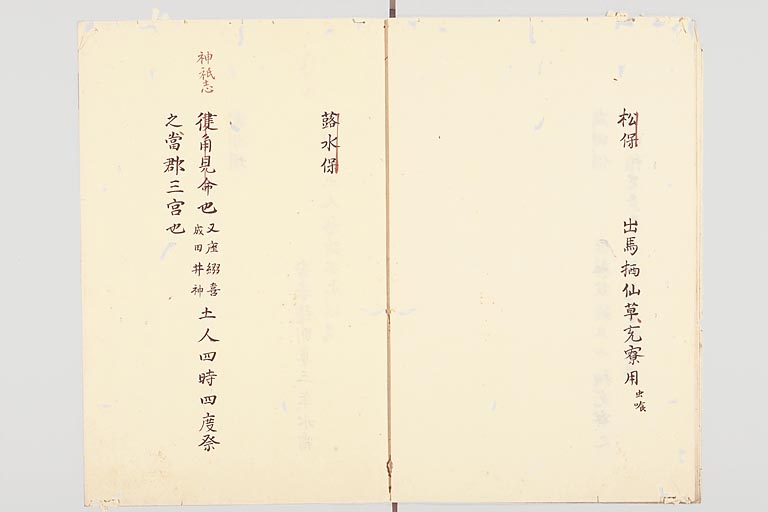 松保
出馬栖仙草充寮用虫喰
蕗水保
神祇志
健角見命也又座綴喜成田井神土人四時四度祭
之當郡三宮也